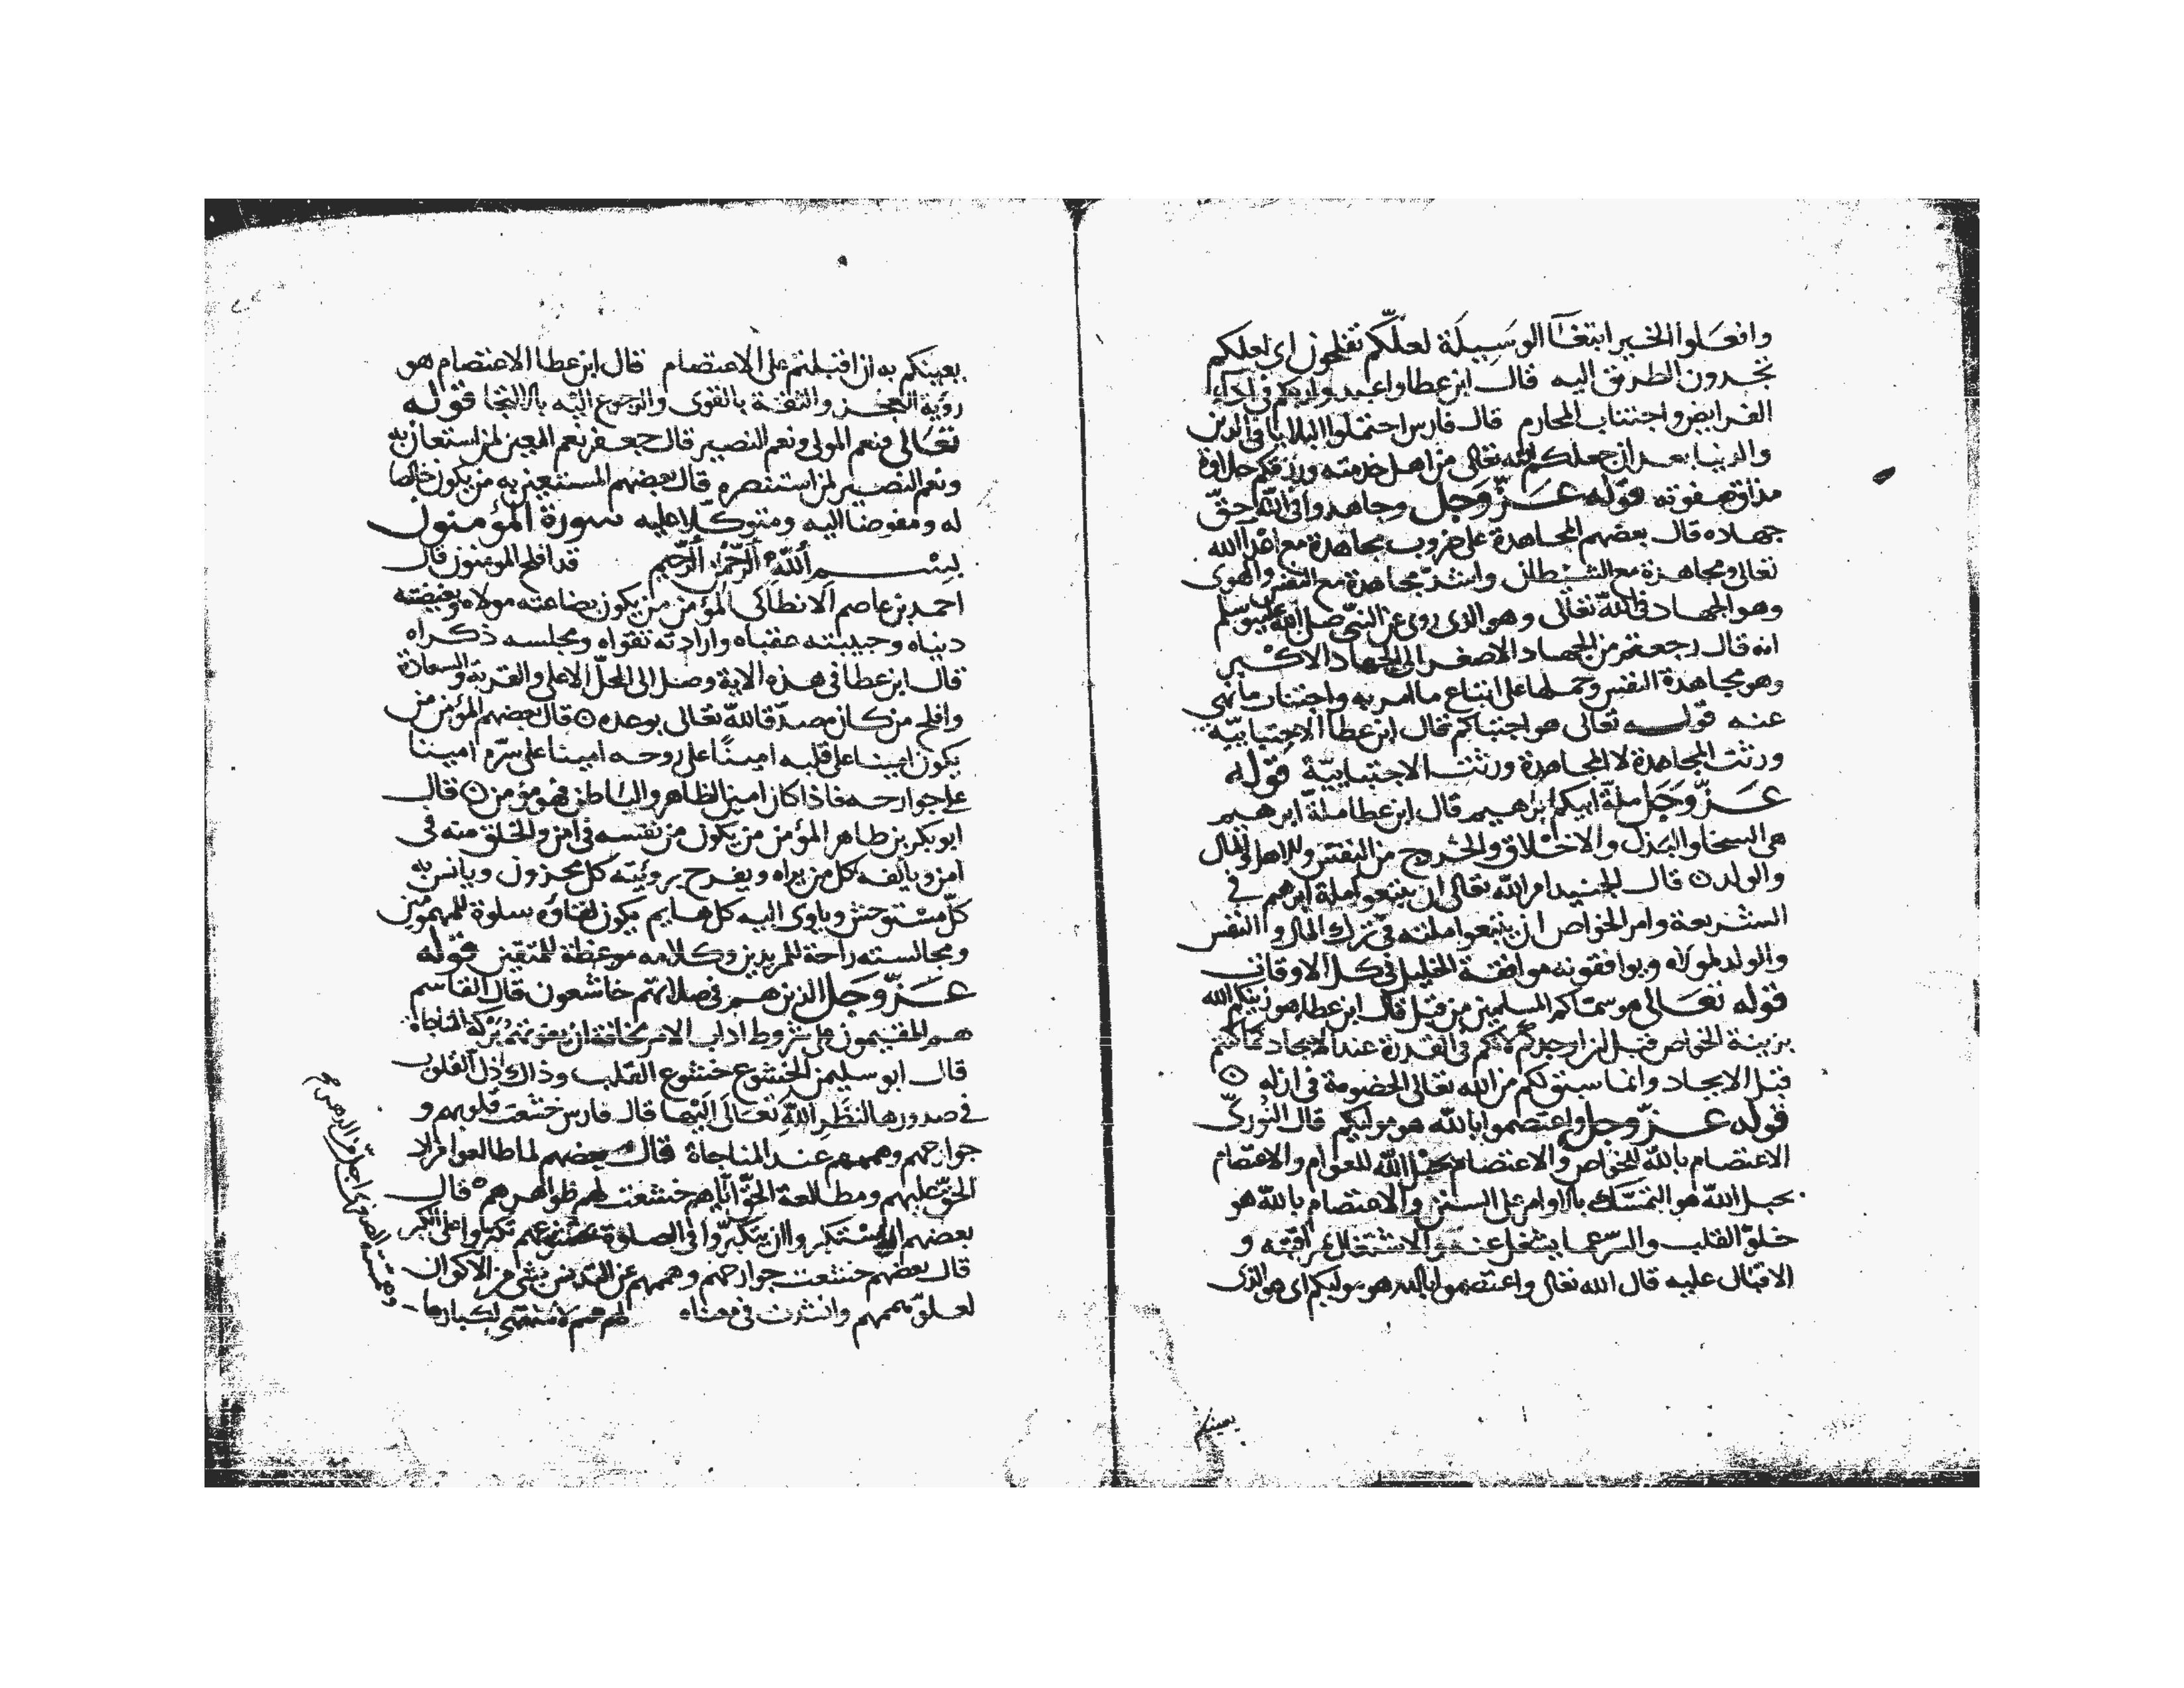 وافعلوا الخير ابتغاء الوسيلة لعلكم تفلحون اى لعلكم
تجدون الطريق اليه قال ابن عطا واعبدوا ربكم فى اداء
الفرايض واجتناب المحارم قال فارس احتملوا البلايا فى الدين
والدنيا بعد ان جعلكم الله تعالى من اهل خدمته ورزقكم حلاوة
مذاق صفوته قوله عز وجل وجاهدوا فى الله حق
جهاده قال بعضهم المجاهدة على ضروب مجاهدة مع اعدا الله
تعالى ومجاهدة مع الشيطان واشد مجاهدة مع النفس والهوى
وهو الجهاد فى الله تعالى وهو الذى روى عن النبى صلى الله عليه وسلم
انه قال رجعتم من الجهاد الاصغر الى الجهاد الاكبر
وهو مجاهدة النفس وحملها على اتباع ما امر به واجتناب ما نهى
عنه قوله تعالى هو اجتباكم قال ابن عطا الاجتبايية
ورثت المجاهدة لا المجاهدة ورثت الاجتبايية قوله
عز وجل ملة ابيكم ابرهيم قال ابن عطا ملة ابرهيم
هى السخا والبذل والاخلاق والخروج من النفس والاهل والمال
والولد ن قال الجنيد امر الله تعالى ان يتبعوا ملة ابرهم فى
الشريعة وامر الخواص ان يتبعوا ملته فى ترك المال والنفس
والولد لمولاه ويوافقونه موافقة الخليل فى كل الاوقات
قوله تعالى هو سماكم المسلمين من قبل قال ابن عطا هو زينكم الله
بزينة الخواص قبل ان اوجدكم لانكم فى القدرة عند الايجاد كما كنتم
قبل الايجاد وانما سبق لكم من الله تعالى الخصوصة فى ازله
قوله عز وجل واعتصموا بالله هو موليكم قال النورى
الاعتصام بالله للخواص والاعتصام بحبل الله للعوام والاعتصام
بحبل الله هو التمسك بالاوامر على السنن والاعتصام بالله هو
خلو القلب والسر عما يشغل عنه والاشتغال بمراقبته و
الاقبال عليه قال الله تعالى واعتصموا بالله هو موليكم اى هو الذى
يعينكم
يعينكم به ان اقبلتم على الاعتصام قال ابن عطا الاعتصام هو
رؤية العجز والثقة بالقوى والرجوع اليه بالالتجا قوله
تعالى فنعم المولى ونعم النصير قال جعفر نعم المعين لمن استعان به
ونعم النصير لمن استنصره قال بعضهم المستعين به من يكون خالصا
له ومفوضا اليه ومتوكلا عليه سورة المؤمنون
بسم الله الرحمن الرحيم قد افلح المومنون قال
احمد بن عاصم الانطاكى المؤمن من يكون بضاعته مولاه وبغيضته
دنياه وحبيبته عقباه وارادته تقواه ومجلسه ذكراه
قال ابن عطا فى هذه الاية وصل الى المحل الاعلى والقربة والسعادة
وافلح من كان مصدقا لله تعالى بوعده ن قال بعضهم المؤمن من
يكون امينا على قلبه امينا على روحه امينا على سره امينا
على جوارحه فاذا كان امين الظاهر والباطن فهو مؤمن ن قال
ابو بكر بن طاهر المؤمن من يكون من نفسه فى امن والخلق منه فى
امن ويالفه كل من يراه ويفرح برؤيته كل محزون ويانس به
كل مستوحش وياوى اليه كل هايم يكون لقاؤه سلوة للمهمومين
ومجالسته راحة للمريدين وكلامه موعظة للمتقين قوله
عز وجل الذين هم فى صلاتهم خاشعون قال القاسم
هم المقيمون على شروط اداب الامر مخافة ان يفوتهم بركة المناجاة
قال ابو سليمن الخشوع خشوع القلب وذاك ذل القلوب
فى صدورها لنظر الله تعالى اليها قال فارس خشعت قلوبهم و
جوارحهم وهممهم عند المناجاة قال بعضهم لما طالعوا من الا
الحق عليهم ومطالعة الحق اياهم خشعت لهم ظواهرهم ه قال
بعضهم استكبروا ان يتكبروا فى الصلوة خشوعهم تكبروا على الكبر
قال بعضهم خشعت جوارحهم وهممهم عن التدنس بشى من الاكوان
لعلو هممهم وانشدت فى معناه لهم همم لا منتهى لكبارها
وهمته الصغرى اجل من الدهر